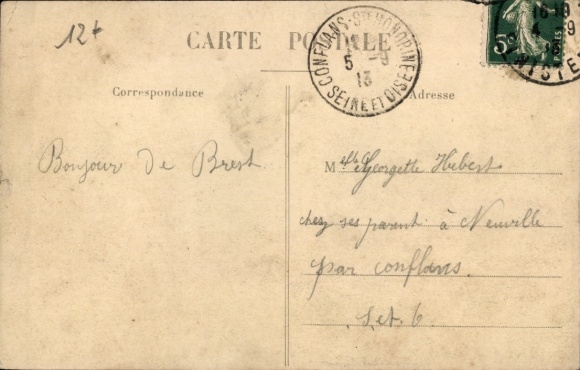 12+
CARTE POSTALE
CONFLANS-STE HONORINE
5 -9
13
SEINE ET OISE
16-10
4 -9
13
5c
Correspondance
Adresse
Bonjour de Brest
Melle Georgette Hubert
chez ses parent à Neuville
par conflans.
S. et. O.